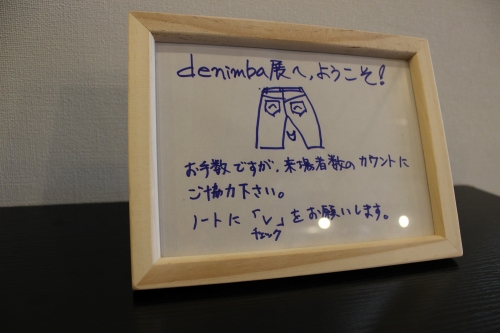 denimba展へ、ようこそ!
お手数ですが、来場者数のカウントに
ご協力下さい。
ノートに「✓」をお願いします。
チェック